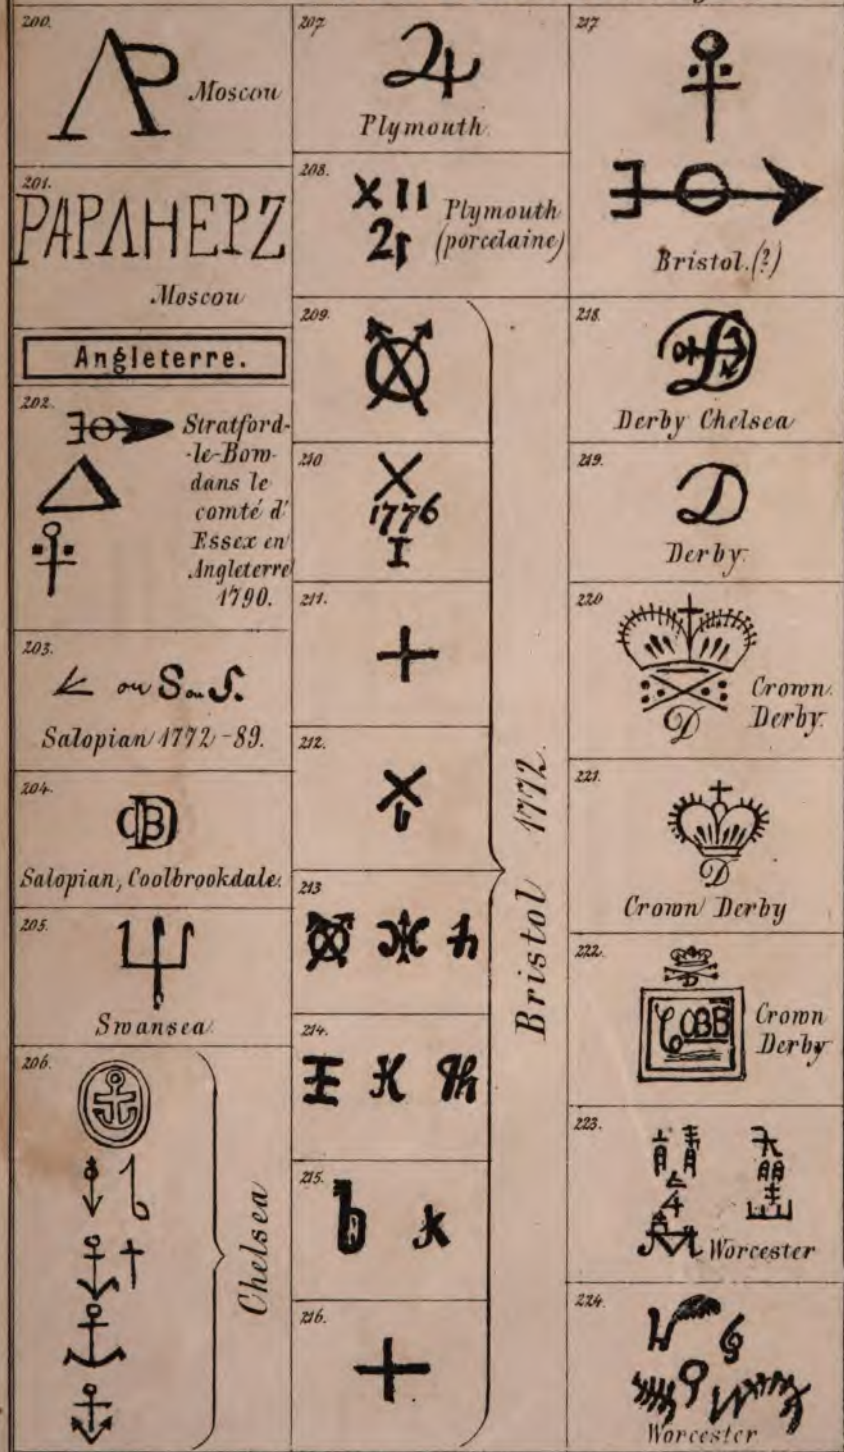 200.
AP Moscou
201.
PAPAHEPZ
Moscou
Angleterre.
202.
Stratford-
-le-Bow
dans le
comté d'
Essex en
Angleterre
1790.
203.
ou S ou S.
Salopian 1772-89.
204.
Salopian, Coolbrookdale.
205.
Swansea.
206.
Chelsea
207.
Plymouth.
208.
X II
Plymouth
(porcelaine)
209.
210
X
1776
I
211.
+
212.
X
b
213
h
214.
K
215.
b k
216.
+
Bristol 1772.
217
Bristol.(?)
218.
Derby Chelsea
219.
D
Derby.
220
D
Crown
Derby.
221.
D
Crown Derby
222.
D
Crown
Derby
223.
Worcester
224.
Worcester